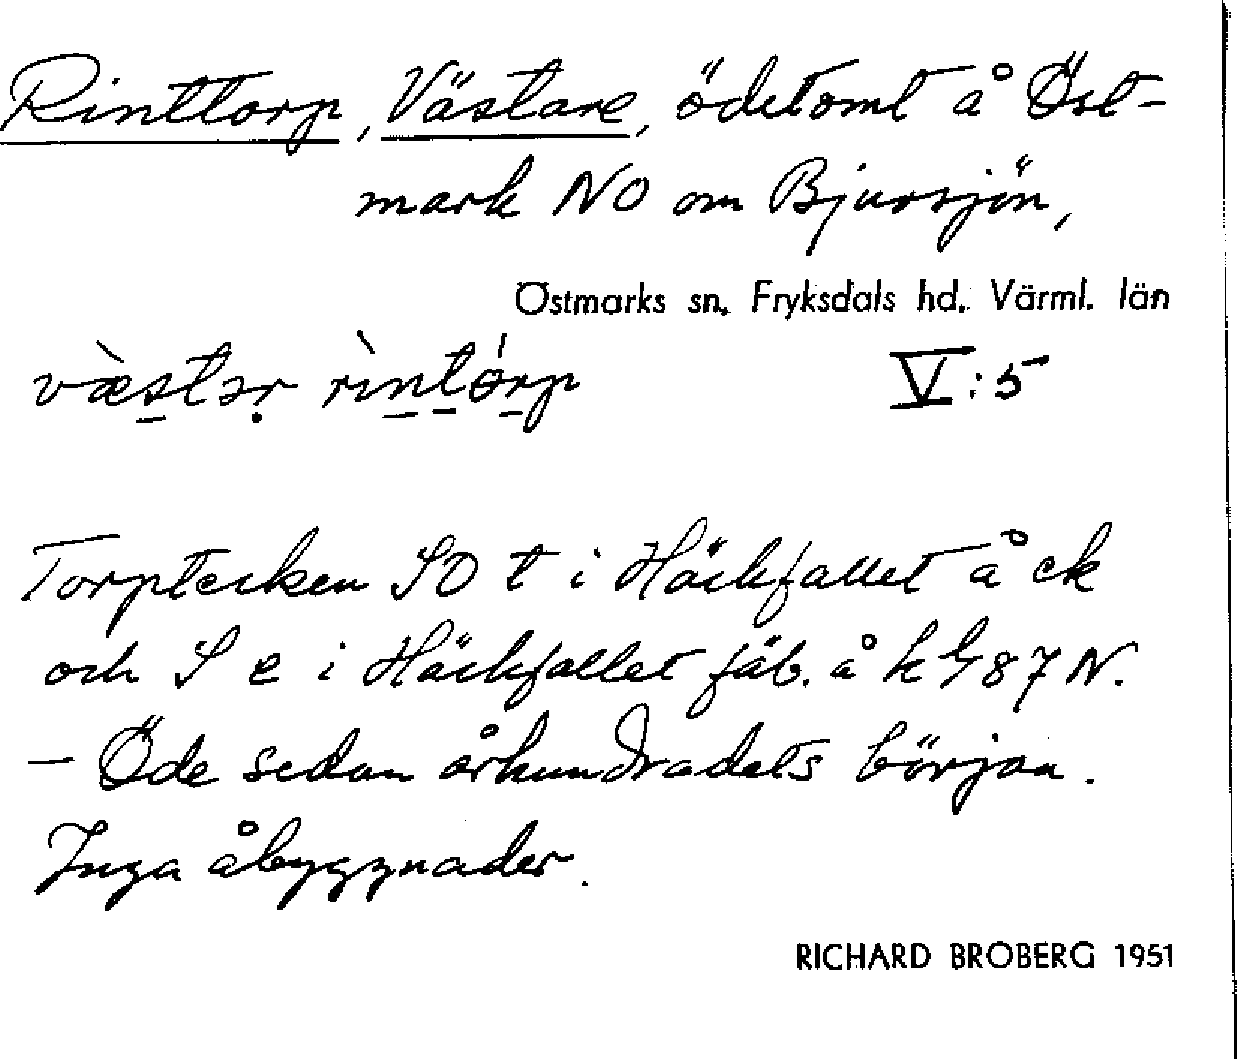 Rinttorp, Västare, ödetomt å Öst-
mark NO om Bjursjön,
Östmarks sn. Fryksdals hd. Värml. län
væ̀stər rìntórp V:5
Torptecken SO t i Häckfallet å ek
och S e i Häckfallet fäb. å k bl 87 N.
— Öde sedan århundradets början.
Inga åbyggnader.
RICHARD BROBERG 1951